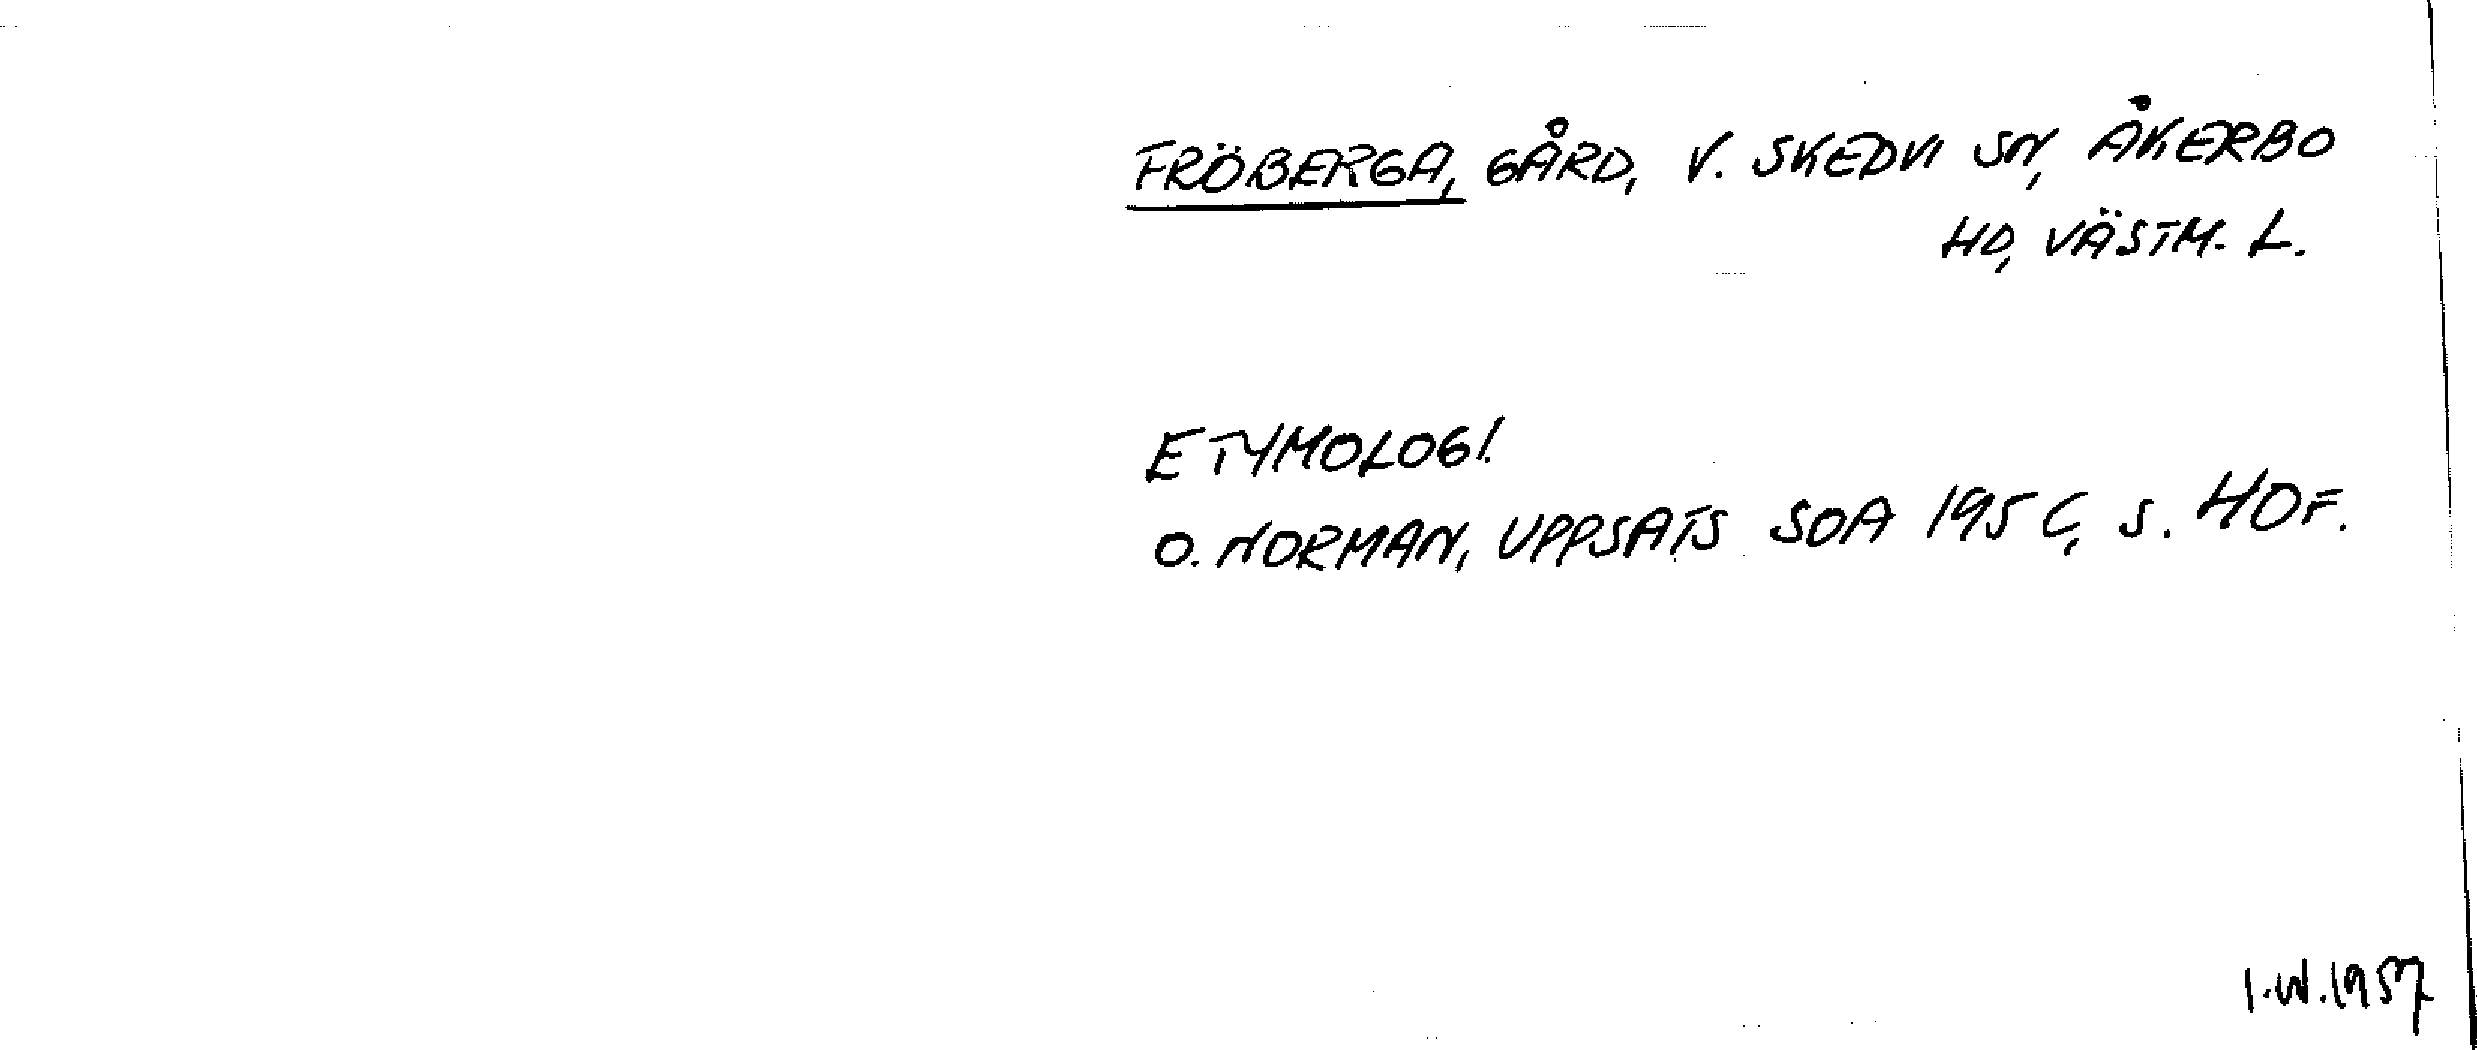 FRÖBERGA, GÅRD, V. SKEDVI SN, ÅKERBO
HD, VÄSTM. L.
ETYMOLOGI.
O. NORMAN, UPPSATS SOA 195 C, S. 40 F.
I.W.1957